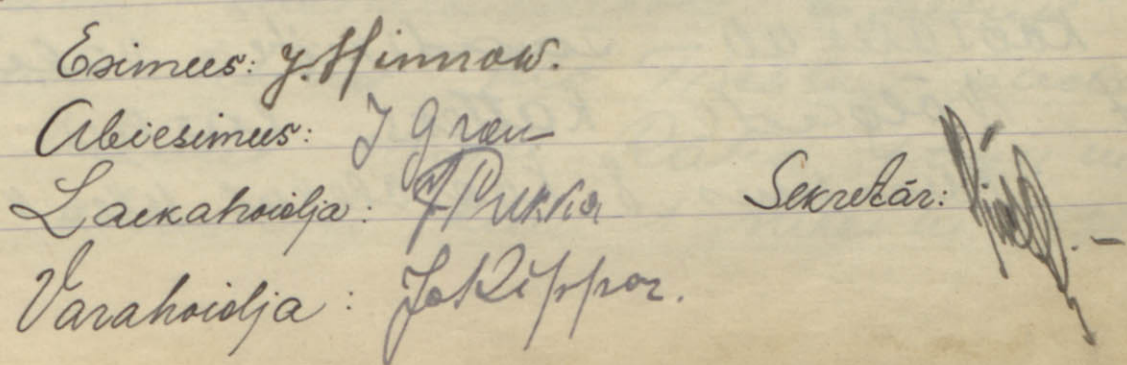 Esimees: J. Hinnow.
Abiesimees: J Grau
Laekahoidja: J Pukka
Sekretär:
Varahoidja: Jo Kippar.